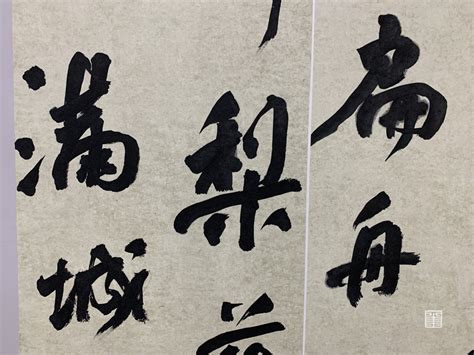 扁舟
梨
滿城